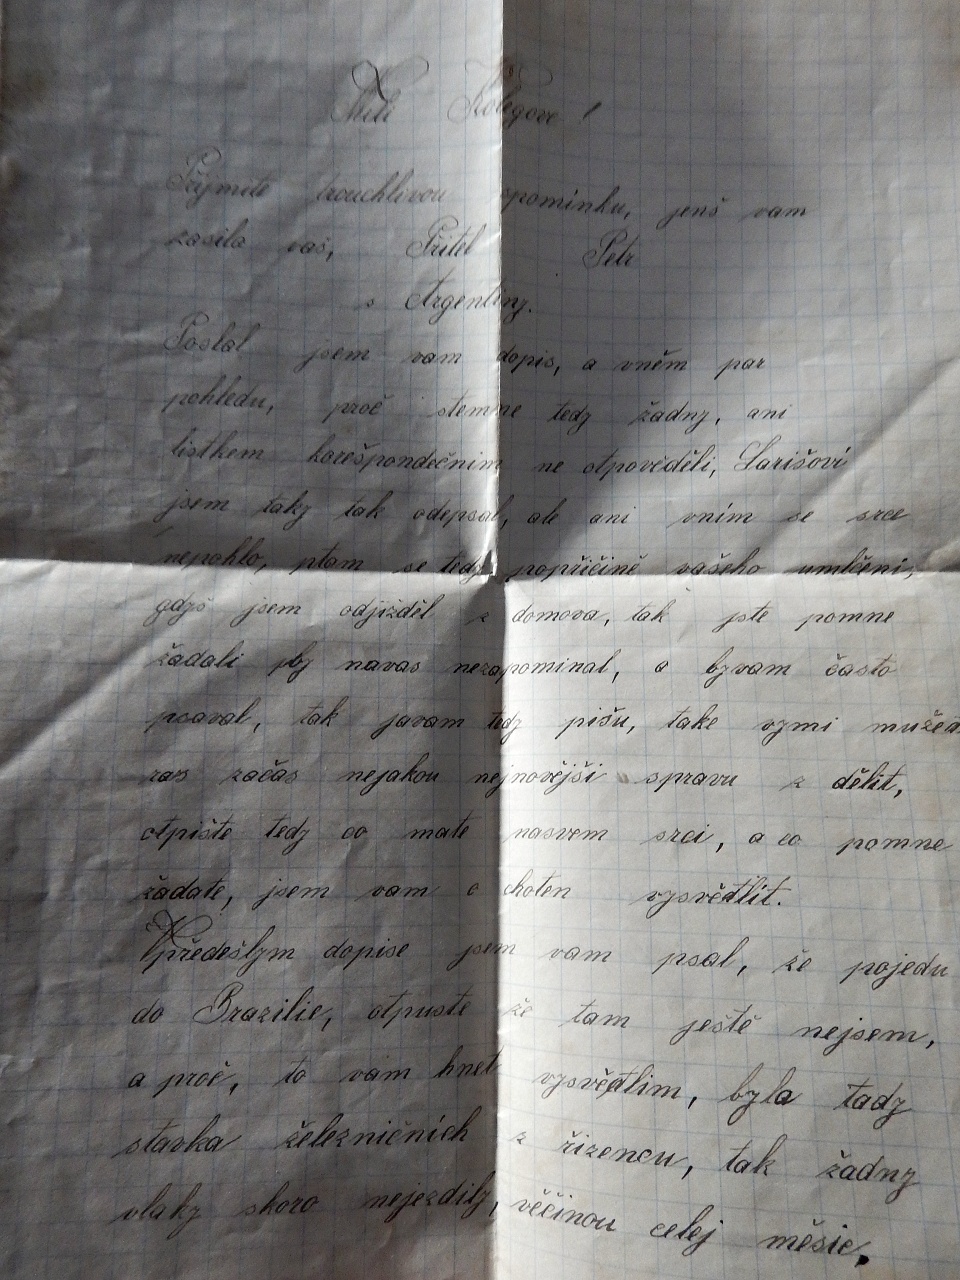 Mili Kolegove!
Přijmite trouchlivou spominku, jenš vam
zasila vaš, Přitel Petr
s Argentiny.
Poslal jsem vam dopis, a vněm par
pohledu, proč stemne tedy žadny, ani
listkem korešpondečnim ne otpověděli, Larišovi
jsem taky tak odepsal, ale ani vním se srce
nepohlo, ptam se tedy popřičině vašeho umlčeni,
gdyš jsem odjižděl z domova, tak jste pomne
žadali by navas nezapominal, a byvam často
psaval, tak javam tedy pišu, take vymi mužea
ras začas nejakou nejnovější spravu z dělit,
otpište tedy co mate nasvem srci, a co pomne
žadate, jsem vam o choten vysvětlit.
Vpředešlym dopise jsem vam psal, že pojedu
do Brazilie, otpuste že tam ještě nejsem,
a proč, to vam hnet vysvětlim, byla tady
stavka železničních z řizencu, tak žadny
vlaky skoro nejezdily, věčinou celej měsic,